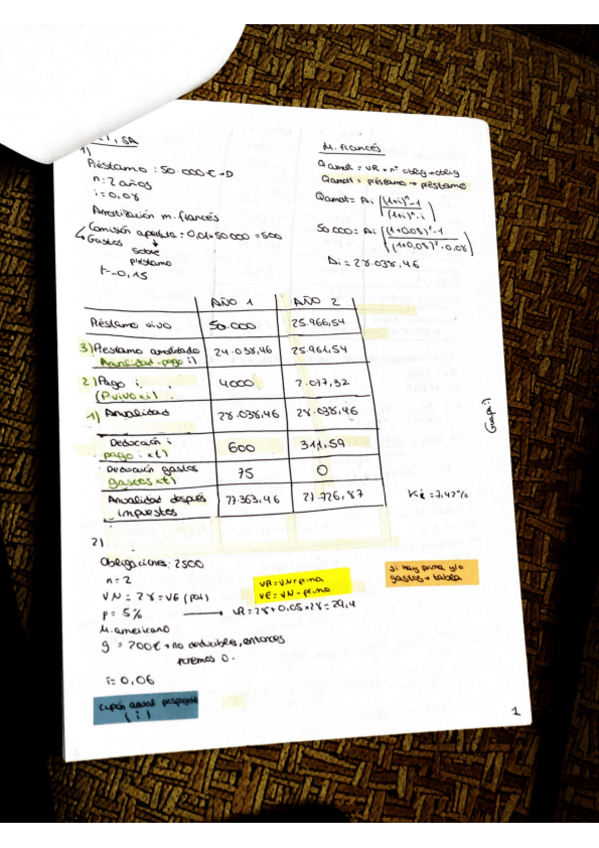 , SA
1)
Préstamo : 50.000 € → D
n = 2 años
i = 0,08
Amortización m. francés
Comisión apertura = 0,01 × 50.000 = 500
Gastos
sobre
préstamo
t = 0,15
M. francés
Q amort = VR × nº oblig → oblig
Q amort = préstamo → préstamo
Q amort = Ai ((1+i)ⁿ-1 / (1+i)ⁿ·i)
50.000 = Ai ((1+0,08)²-1 / (1+0,08)²·0,08)
Ai = 28.038,46
AÑO 1 AÑO 2
Préstamo vivo 50.000 25.966,54
3) Préstamo amortizado 24.038,46 25.961,54
Anualidad - pago i)
2) Pago i 4000 2.077,32
(P. vivo × i)
1) Anualidad 28.038,46 28.038,46
Deducción i 600 311,59
pago i × t)
Deducción gastos 75 0
gastos × t)
Anualidad después 27.363,46 27.726,87
impuestos
Ki = 7,47%
Guapi :)
2)
Obligaciones: 2500
n = 2
VN = 28 = VE (par)
p = 5% → VR = 28 + 0,05 × 28 = 29,4
M. americano
g = 200€ → no deducibles, entonces
ponemos 0.
i = 0,06
VR = VN + prima
VE = VN - prima
si hay prima y/o
gastos → tabla
cupón anual pospagable
( i )
1